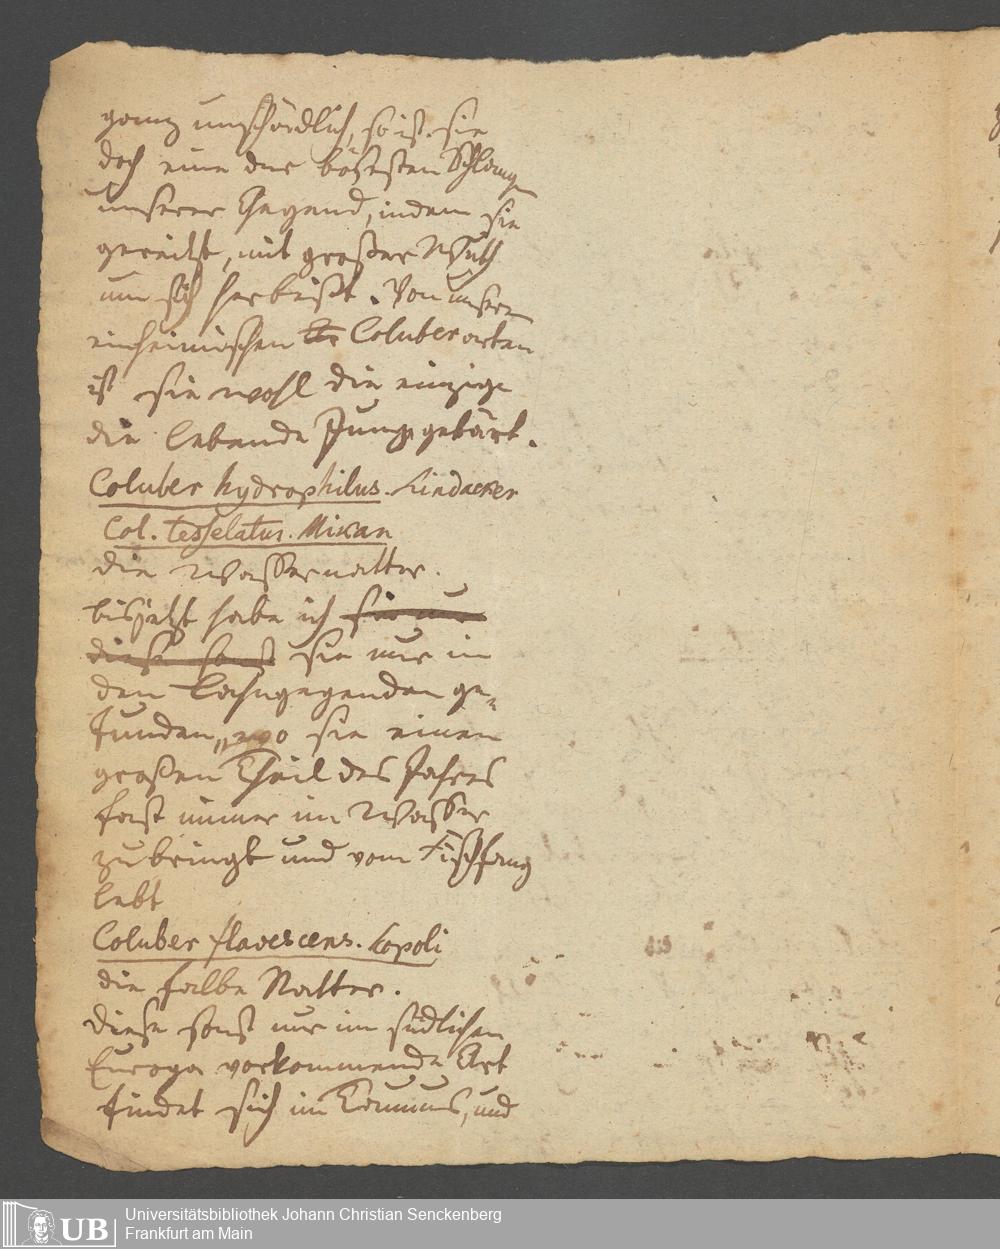 ganz unschädlich, so ist sie
doch eine der bösesten Schlangen
unserer Gegend, indem sie
gereitzt, mit großer Wuth
um sich herbeißt. Von unsern
einheimischen Coluberarten
ist sie wohl die einzige
die lebende Junge gebärt.
Coluber hydrophilus. Lindacker
Col. tesselatus. Mikan
die Wassernatter.
bisjetzt habe ich sie nur
diese sonst sie nur in
den Lahngegenden ge-
funden, wo sie einen
großen Theil des Jahres
fast immer im Wasser
zubringt und vom Fischfang
lebt
Coluber flavescens. Scopoli
die falbe Natter.
diese sonst nur im südlichen
Europa vorkommende Art
findet sich im Taunus, und
UB
Universitätsbibliothek Johann Christian Senckenberg
Frankfurt am Main